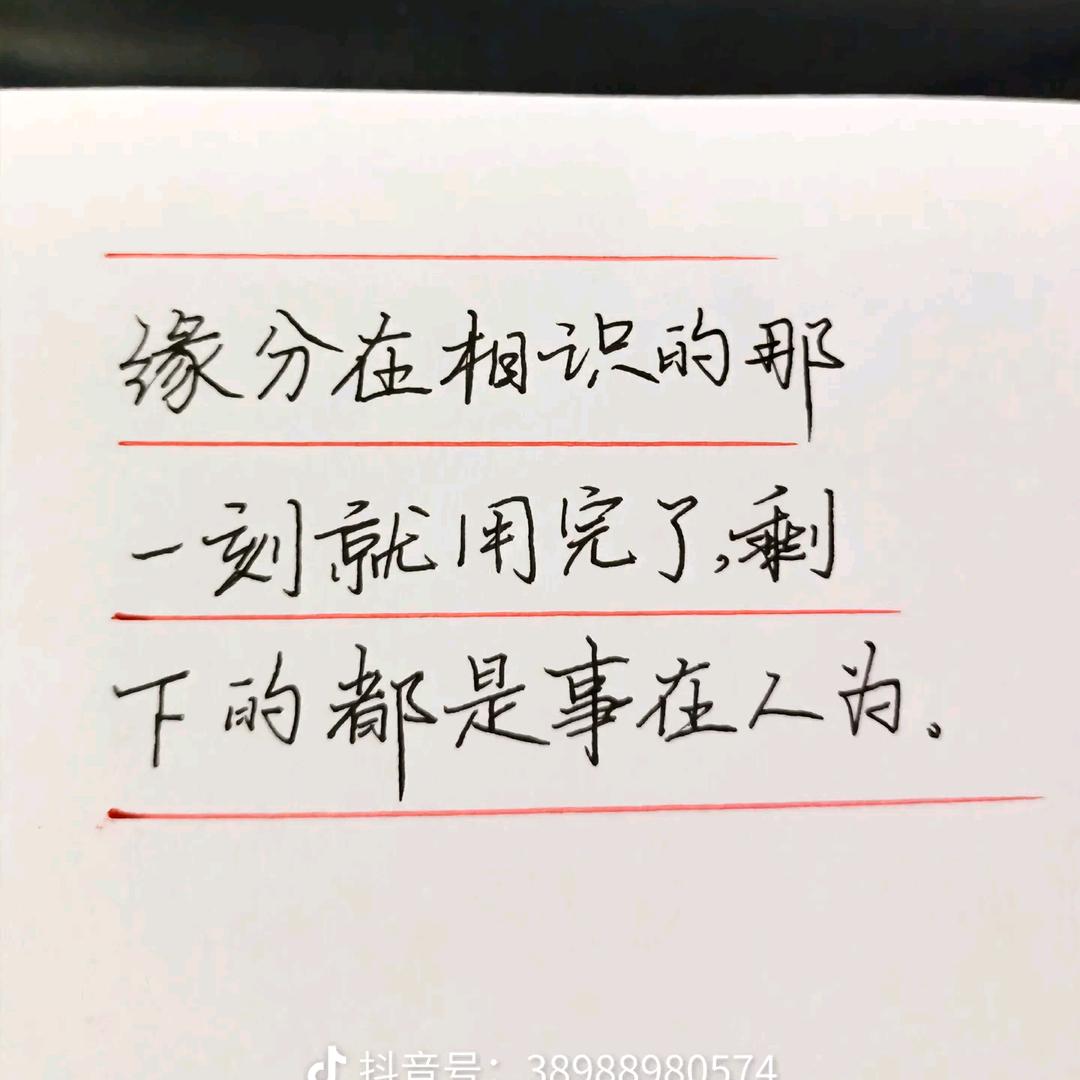 缘分在相识的那
一刻就用完了,剩
下的都是事在人为。
抖音号：38988980574